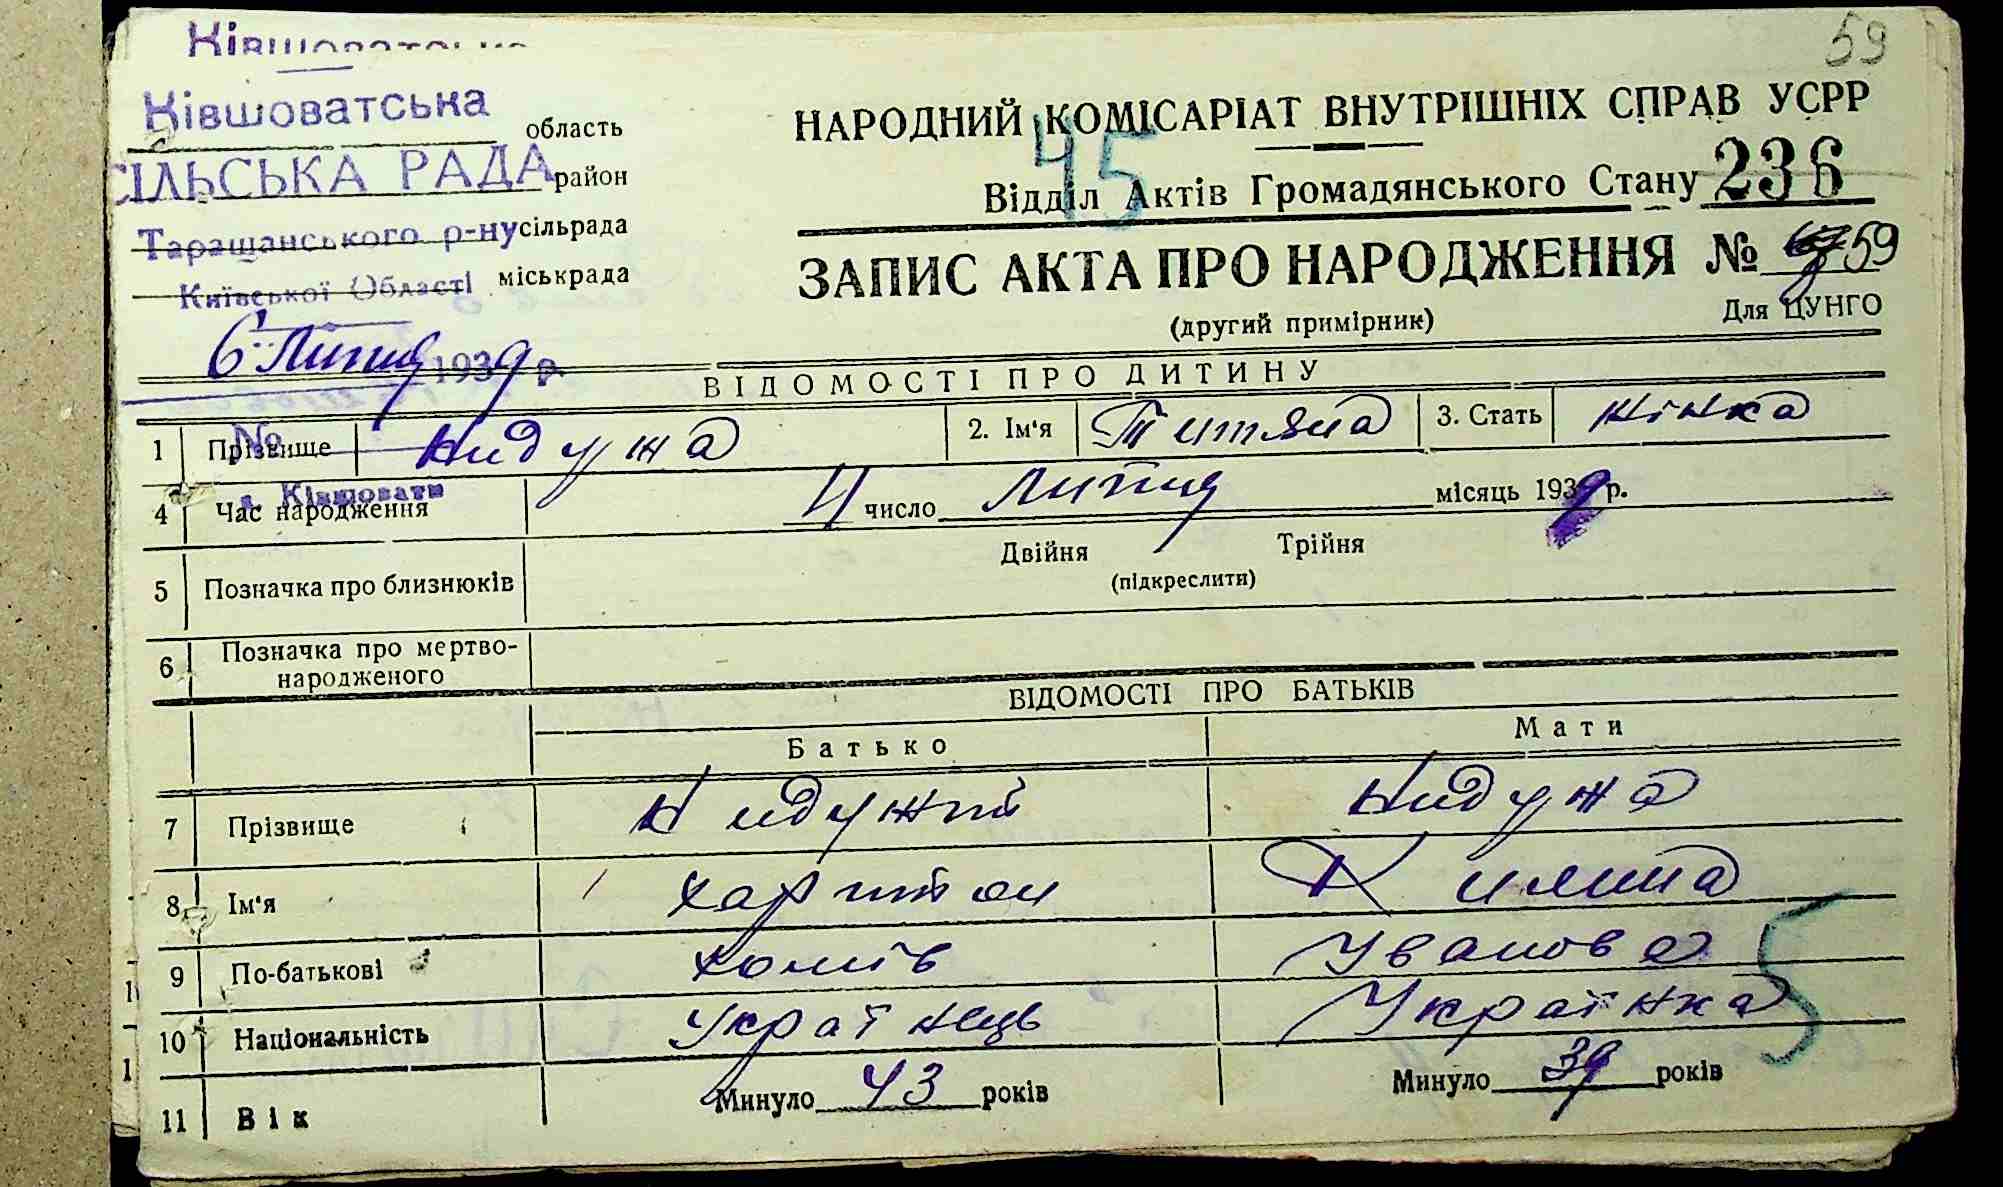 59
Ківшоватська
Ківшоватська область
СІЛЬСЬКА РАДА район
Таращанського р-ну сільрада
Київської Області міськрада
6 Липня 1939 р.
НАРОДНИЙ КОМІСАРІАТ ВНУТРІШНІХ СПРАВ УСРР
45
Відділ Актів Громадянського Стану 236
ЗАПИС АКТА ПРО НАРОДЖЕННЯ № 59
(другий примірник) Для ЦУНГО
ВІДОМОСТІ ПРО ДИТИНУ
№
1 Прізвище Нидужа 2. Ім'я Титяна 3. Стать жінка
с. Ківшовати
4 Час народження 4 число Липня місяць 1939 р.
5 Позначка про близнюків Двійня Трійня
(підкреслити)
6 Позначка про мертво-
народженого
ВІДОМОСТІ ПРО БАТЬКІВ
Батько Мати
7 Прізвище Нидужий Нидужа
8 Ім'я Харитон Килина
9 По-батькові Хомів Іванова
10 Національність Українець Українка
5
11 Вік Минуло 43 років Минуло 39 років